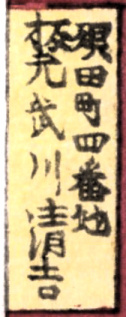 須田町四番地
板元武川清吉